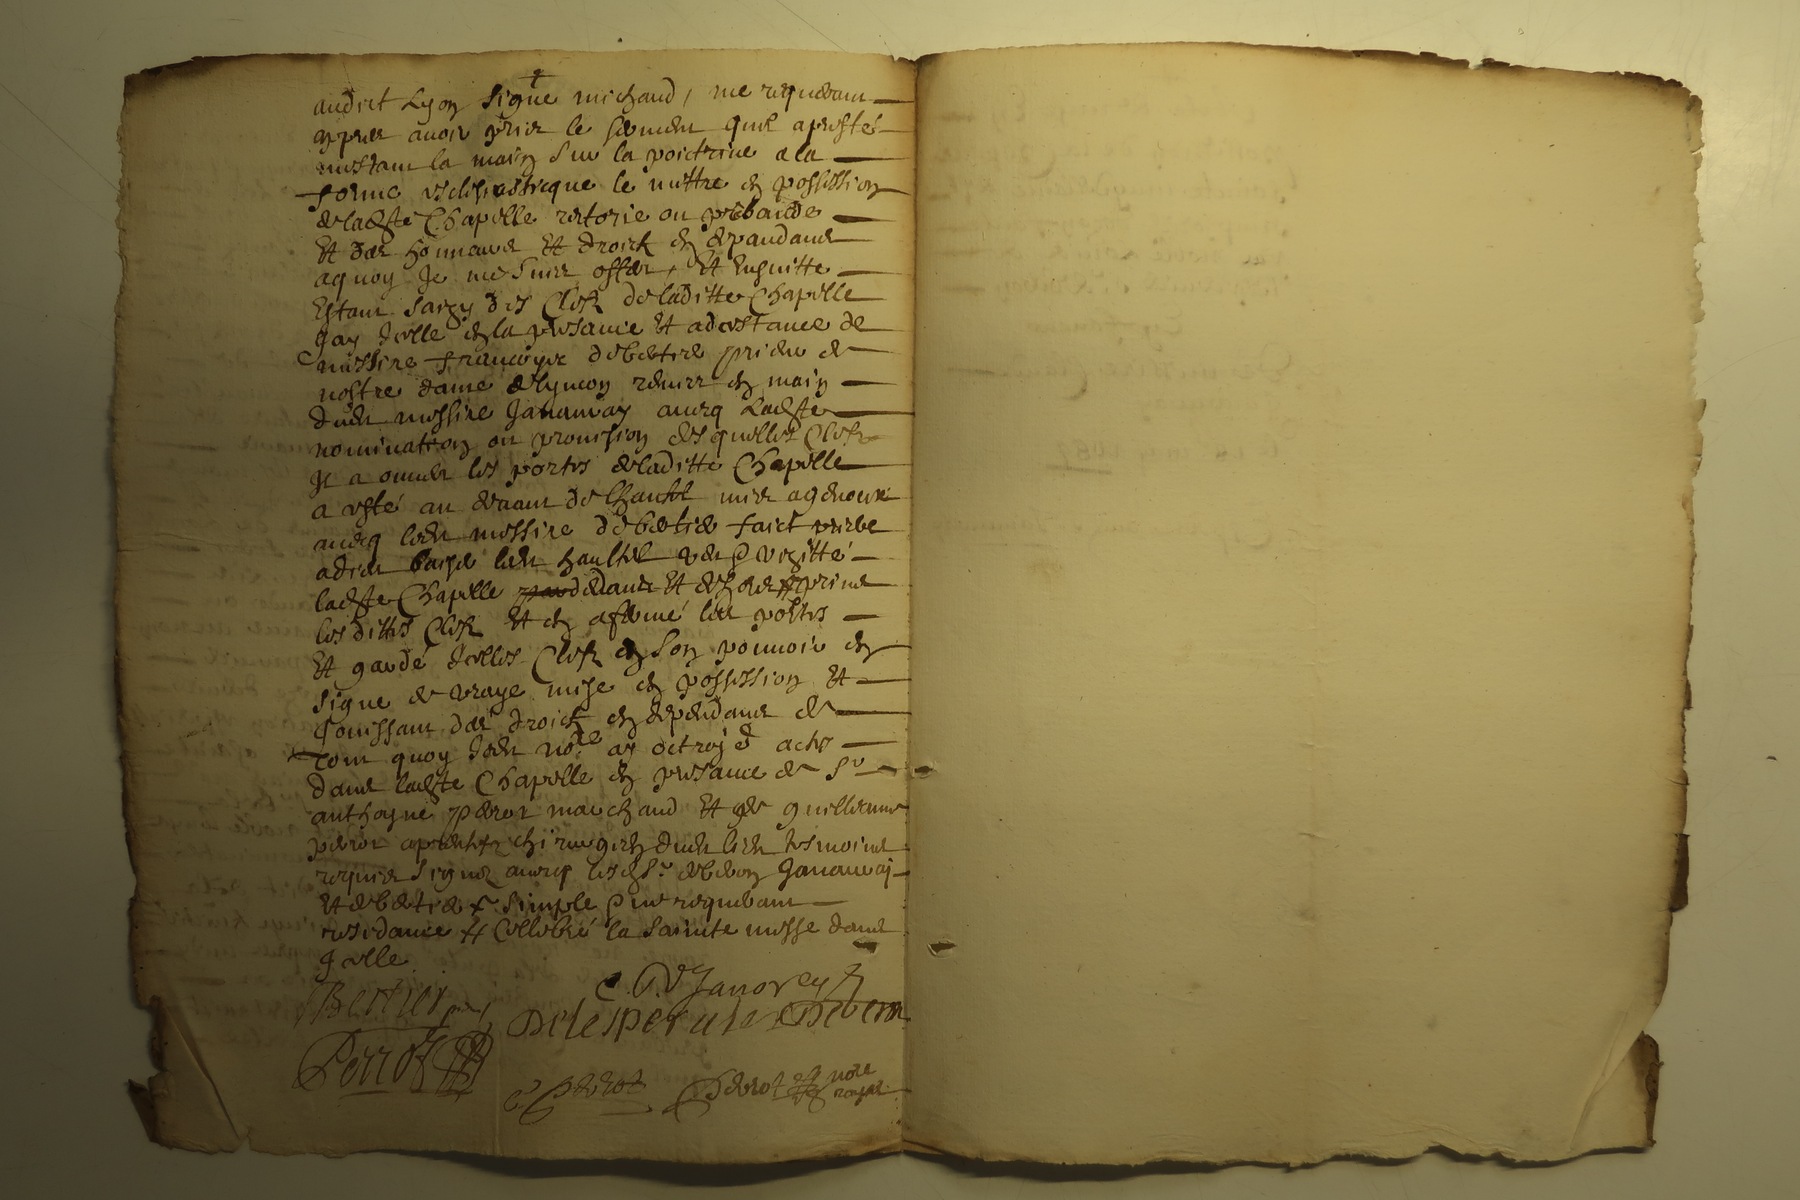 audict Lyon signé michaud, me requerant
apres avoir prier le serment quil a presté
mettant la main sur la poictrine a la
forme eclesiasticque le mettre en possession
de ladite Chapelle rectorie ou prebande
Et des honneurs Et droicts en depandans
a quoy Je me suis offert, Et Ensuitte
Estant saizy des Clefz de laditte Chapelle
Jay Icelle en la presance Et adcistance de
messire françoys debertier prieur de
nostre dame remis en main
dudit messire Janauray avecq Ladite
nomination ou provision desquelles Clefz
Il a ouvert les portes de laditte Chapelle
a esté au devant de lhautel mis a genoux
avecq ledit messire debertier faict priere
a dieu baisé ledit haultel vizitté
ladite Chapelle dedans Et dehors prins
lesdittes Clefz Et en a fermé les portes
Et gardé Icelles Clefz en son pouvoir en
signe de vraye mise en possession Et
Jouissant des droicts en dependans de
Tout quoy ledit nore ay octroyé acte
dans ladite Chapelle en presance de sr
anthoyne perrot marchand Et de guillaume
perrot chirurgien dudit lieu tesmoins
requis signez avecq lesd sr Janauray
Et debertier simple requerant
residance Cellebré la sainte messe dans
Icelle
Bertier
Janorey
Delesperut
Perrot
Perrot
Perrot nore
royal